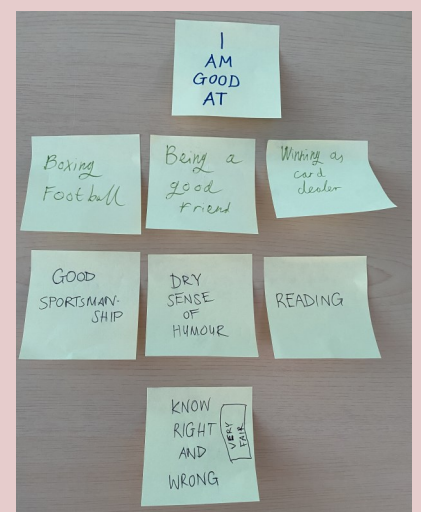 I
AM
GOOD
AT
Boxing
Football
Being a
good
friend
Winning as
card
dealer
GOOD
SPORTSMAN-
SHIP
DRY
SENSE
OF
HUMOUR
READING
KNOW
RIGHT
AND
WRONG
VERY
FAIR